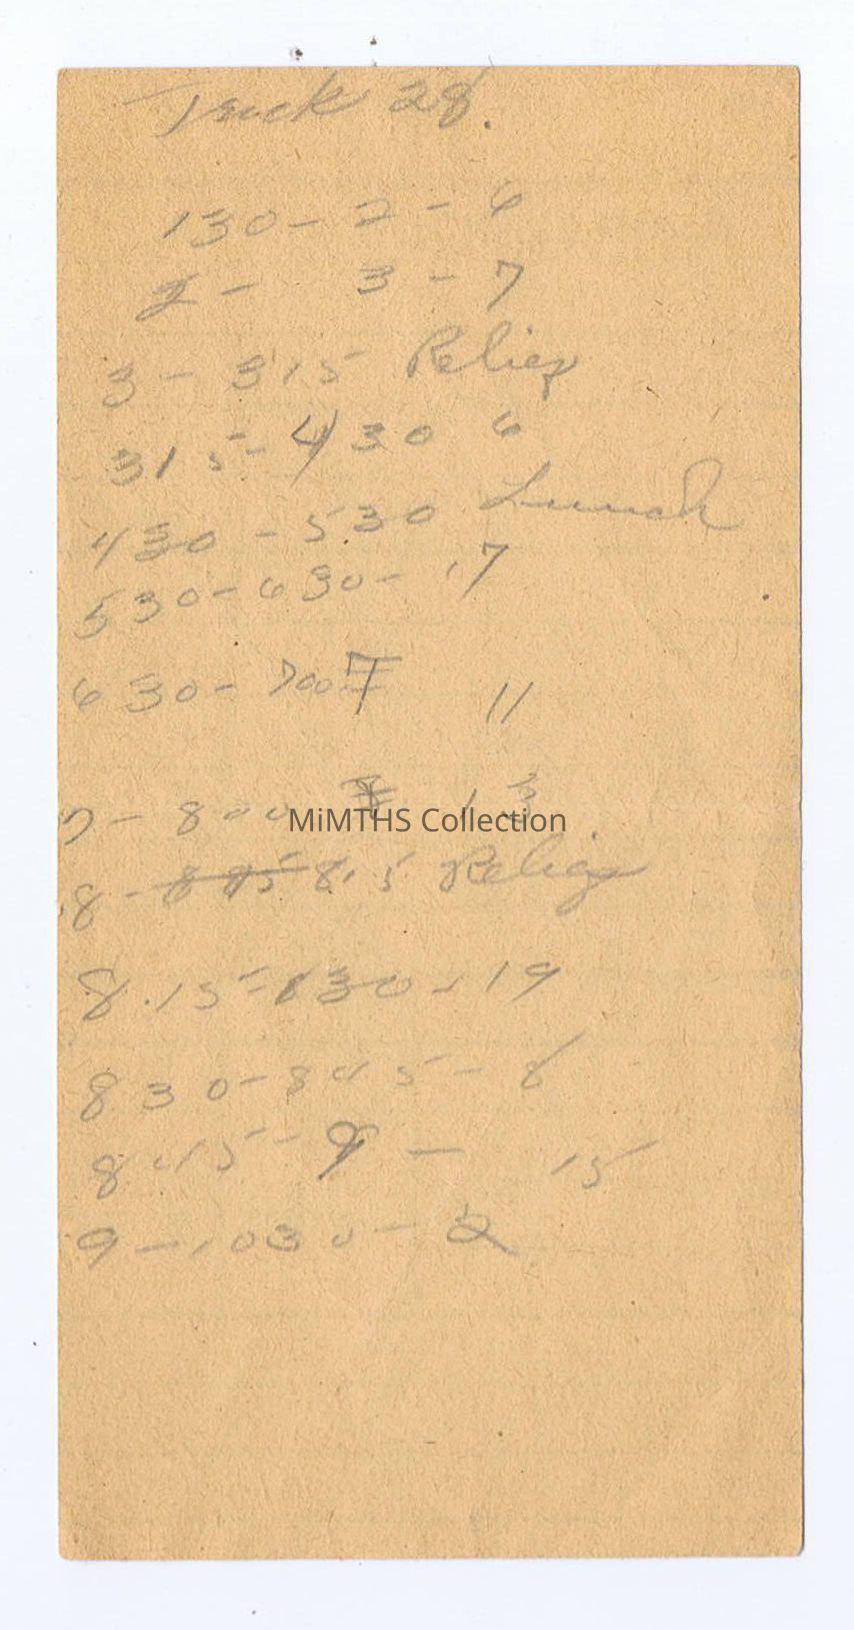 Truck 28.
130 - 2 - 6
2 - 3 - 7
3 - 315 Relief
315 - 430 6
430 - 530 Lunch
530 - 630 - 17
630 - 700 11
7 - 800 13
MiMTHS Collection
8 - 845 8.15 Relief
8.15 - 830 - 19
830 - 845 - 8
845 - 9 - 15
9 - 1030 - 2